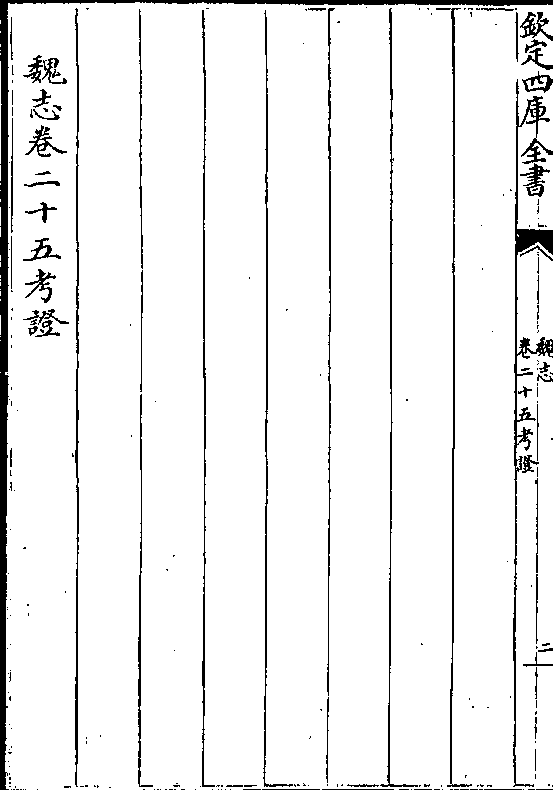 欽定四庫全書
魏志
卷二十五考證
二
魏志卷二十五考證